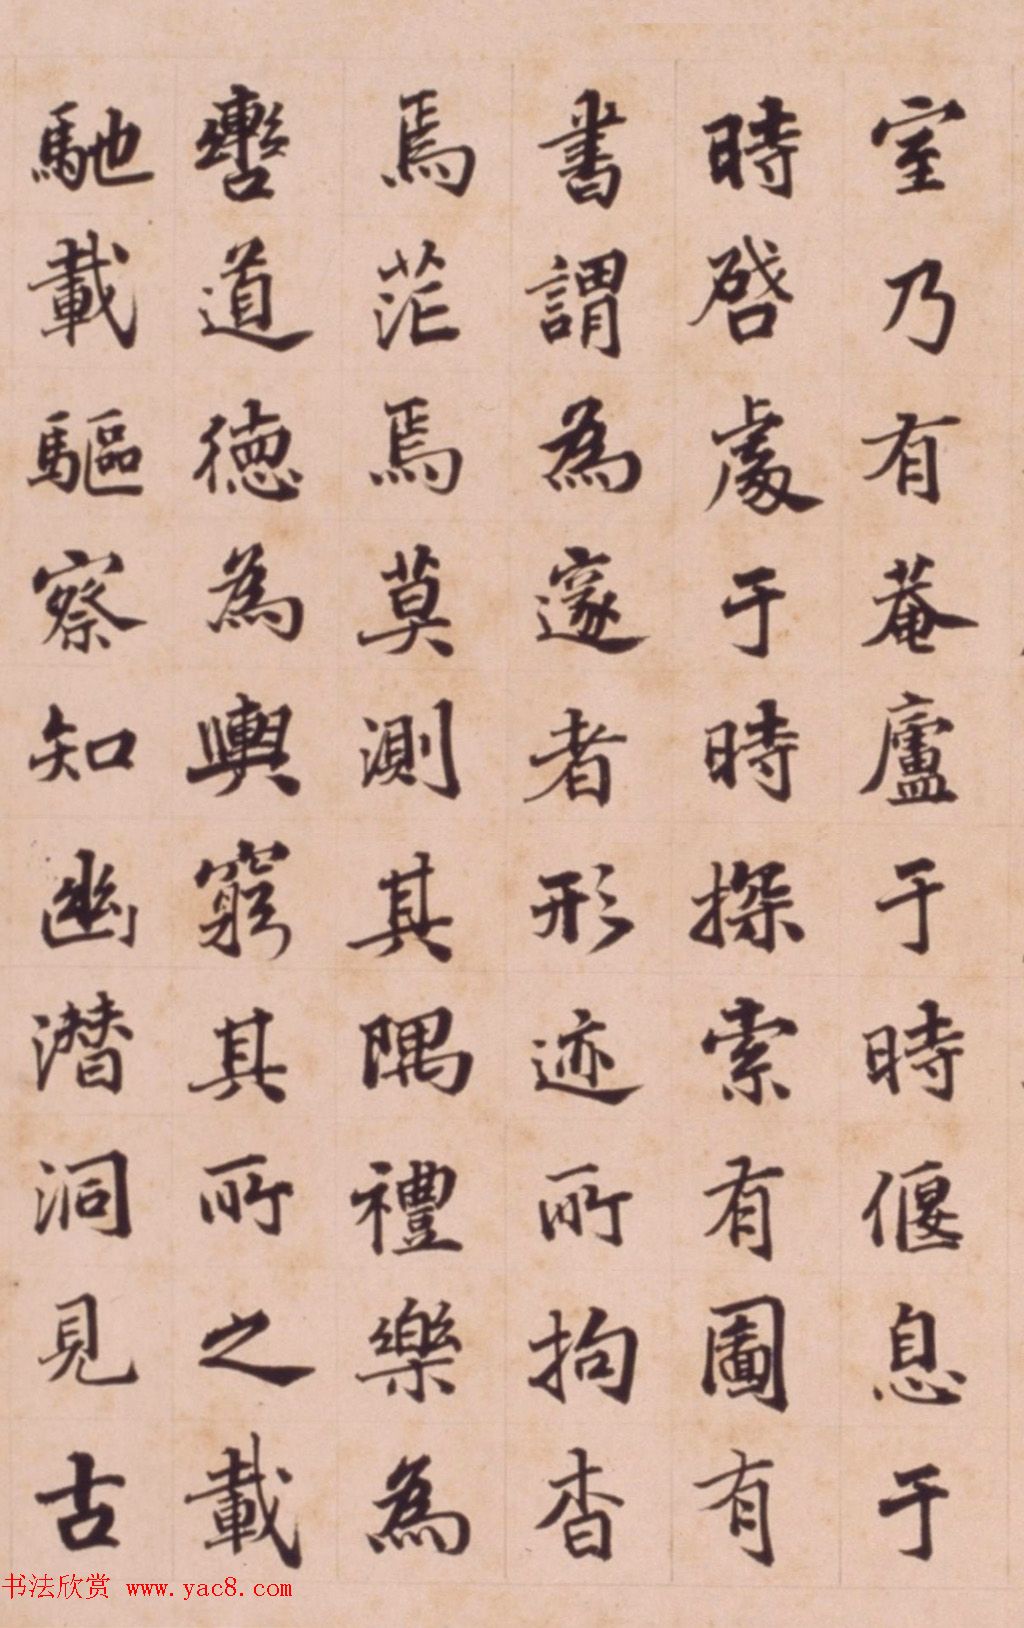 室乃有菴廬于時偃息于
時啓處于時探索有圖有
書謂為邃者形迹所拘杳
焉茫焉莫測其隅禮樂為
轡道德為輿窮其所之載
馳載驅察知幽潛洞見古
书法欣赏 www.yac8.com